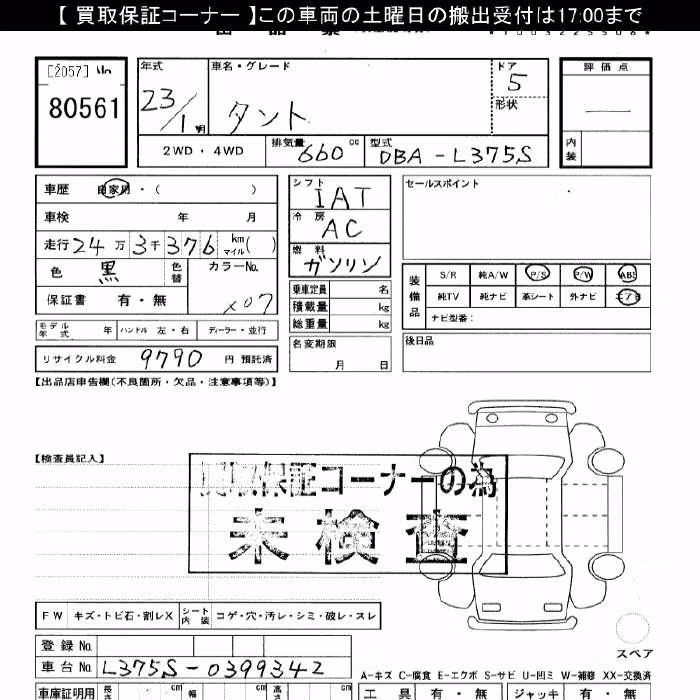 【 買取保証コーナー 】この車両の土曜日の搬出受付は17:00まで
[2057] No
80561
年式
23/1 明
車名・グレード
タント
ドア
5
形状
2WD ・ 4WD
排気量
660 cc
型式
DBA-L375S
評価点
—
内装
車歴 自家用・( )
車検 年 月
走行 24万 3千 376 km マイル( )
色 黒 色替 カラーNo.
X07
保証書 有・無
モデル年式 年 ハンドル 左・右 ディーラー・並行
リサイクル料金 9790 円 預託済
シフト
IAT
冷房
AC
燃料
ガソリン
乗車定員 名
積載量 kg
総重量 kg
名変期限
月 日
セールスポイント
装備品
S/R 純A/W P/S P/W ABS
純TV 純ナビ 革シート 外ナビ エアB
ナビ型番:
後日品
【出品店申告欄(不良箇所・欠品・注意事項等)】
【検査員記入】
買取保証コーナーの為
未検査
FW キズ・トビ石・割レX シート内装 コゲ・穴・汚レ・シミ・破レ・スレ
スペア
登録No.
車台No. L375S-0399342
A-キズ C-腐食 E-エクボ S-サビ U-凹ミ W-補修 XX-交換済
車庫証明用 長さ cm 幅 cm 高さ cm
工具 有・無 ジャッキ 有・無